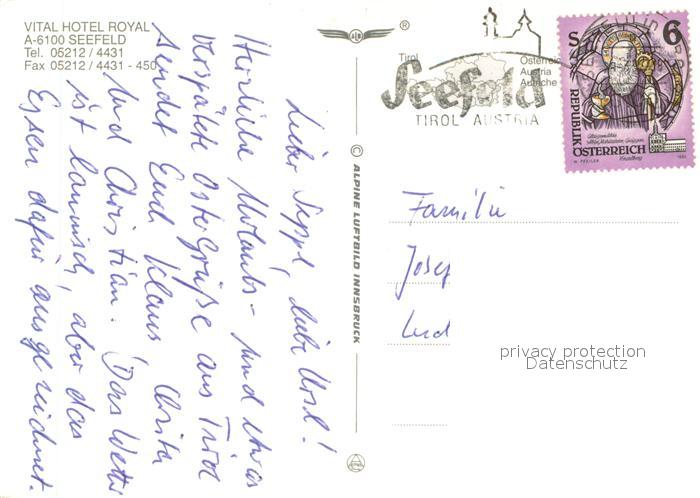 VITAL HOTEL ROYAL
A-6100 SEEFELD
Tel. 05212 / 4431
Fax 05212 / 4431 - 450
Lieber Seppl, liebe Ursl!
Herzliche Urlaubs- und etwas
verspätete Ostergrüße aus Tirol
sendet Euch Klaus Christa
und Christian. (Das Wetter
ist launisch, aber das
Essen dafür ausgezeichnet.
®
© ALPINE LUFTBILD INNSBRUCK
Tirol
Österreich
Austria
Autriche
Seefeld
TIROL AUSTRIA
S 6
REPUBLIK
ÖSTERREICH
Vorarlberg
Familie
Josef
und
privacy protection
Datenschutz